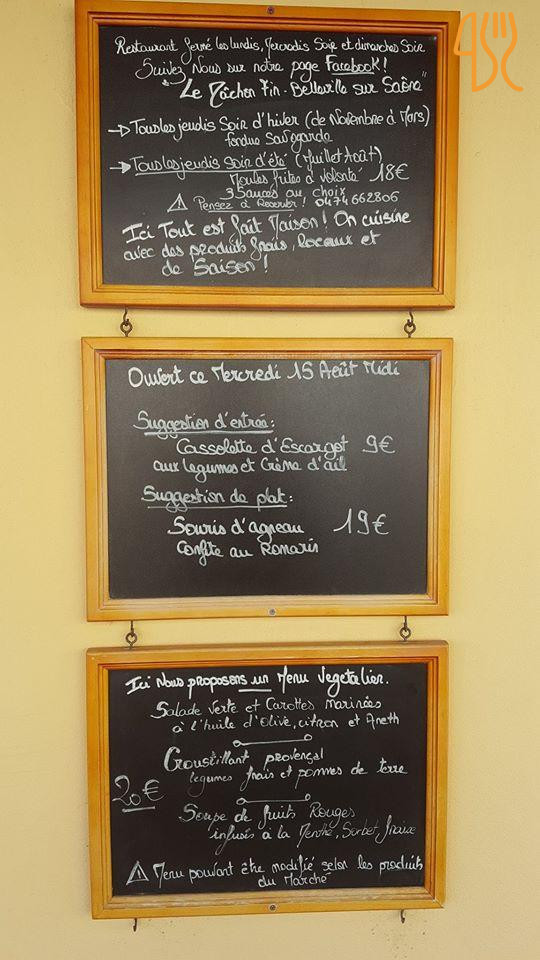 Restaurant fermé les lundis, Mercredis Soir et dimanches Soir
Suivez Nous sur notre page Facebook !
"Le Mâchon Fin - Belleville sur Saône"
→ Tous les jeudis Soir d'hiver (de Novembre à Mars)
fondue Savoyarde
→ Tous les jeudis Soir d'été (Juillet Août)
Moules frites à volonté 18€
3 Sauces au choix
⚠ Pensez à Reserver ! 0474662806
Ici Tout est fait Maison ! On cuisine
avec des produits frais, Locaux et
de Saison !
Ouvert ce Mercredi 15 Août Midi
Suggestion d'entrée :
Cassolette d'Escargot 9€
aux legumes et Crème d'ail
Suggestion de plat :
Souris d'agneau 19€
Confite au Romarin
Ici Nous proposons un Menu Vegetalien.
Salade Verte et Carottes Marinées
à l'huile d'Olive, citron et Aneth
Croustillant provençal
legumes frais et pommes de terre
20€
Soupe de fruits Rouges
infusés à la Menthe, Sorbet fraise
⚠ Menu pouvant être modifié selon les produits
du Marché